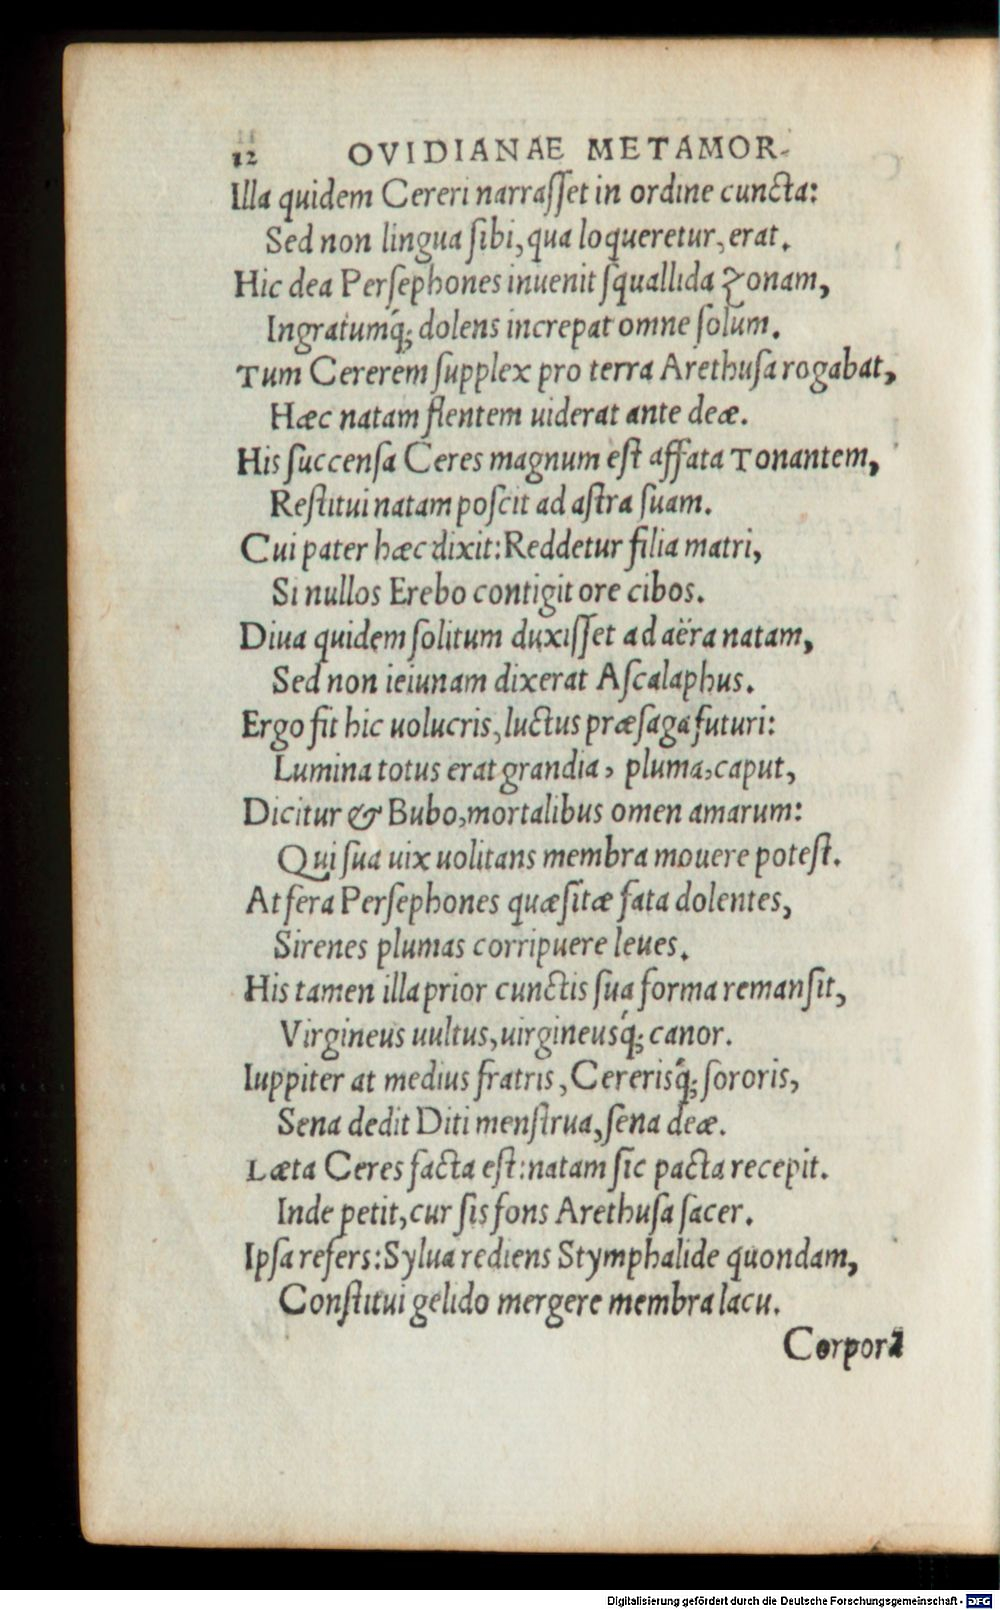 12 OVIDIANAE METAMOR-
Illa quidem Cereri narraſſet in ordine cuncta:
Sed non lingua ſibi, qua loqueretur, erat.
Hic dea Perſephones inuenit ſquallida zonam,
Ingratumq́; dolens increpat omne ſolum.
Tum Cererem ſupplex pro terra Arethuſa rogabat,
Hæc natam flentem uiderat ante deæ.
His ſuccenſa Ceres magnum eſt affata Tonantem,
Reſtitui natam poſcit ad aſtra ſuam.
Cui pater hæc dixit: Reddetur filia matri,
Si nullos Erebo contigit ore cibos.
Diua quidem ſolitum duxiſſet ad aëra natam,
Sed non ieiunam dixerat Aſcalaphus.
Ergo fit hic uolucris, luctus præſaga futuri:
Lumina totus erat grandia, pluma, caput,
Dicitur & Bubo, mortalibus omen amarum:
Qui ſua uix uolitans membra mouere poteſt.
At fera Perſephones quæſitæ fata dolentes,
Sirenes plumas corripuere leues.
His tamen illa prior cunctis ſua forma remanſit,
Virgineus uultus, uirgineusq́; canor.
Iuppiter at medius fratris, Cererisq́; ſororis,
Sena dedit Diti menſtrua, ſena deæ.
Læta Ceres facta eſt: natam ſic pacta recepit.
Inde petit, cur ſis fons Arethuſa ſacer.
Ipſa refers: Sylua rediens Stymphalide quondam,
Conſtitui gelido mergere membra lacu.
Corpora
Digitalisierung gefördert durch die Deutsche Forschungsgemeinschaft - DFG